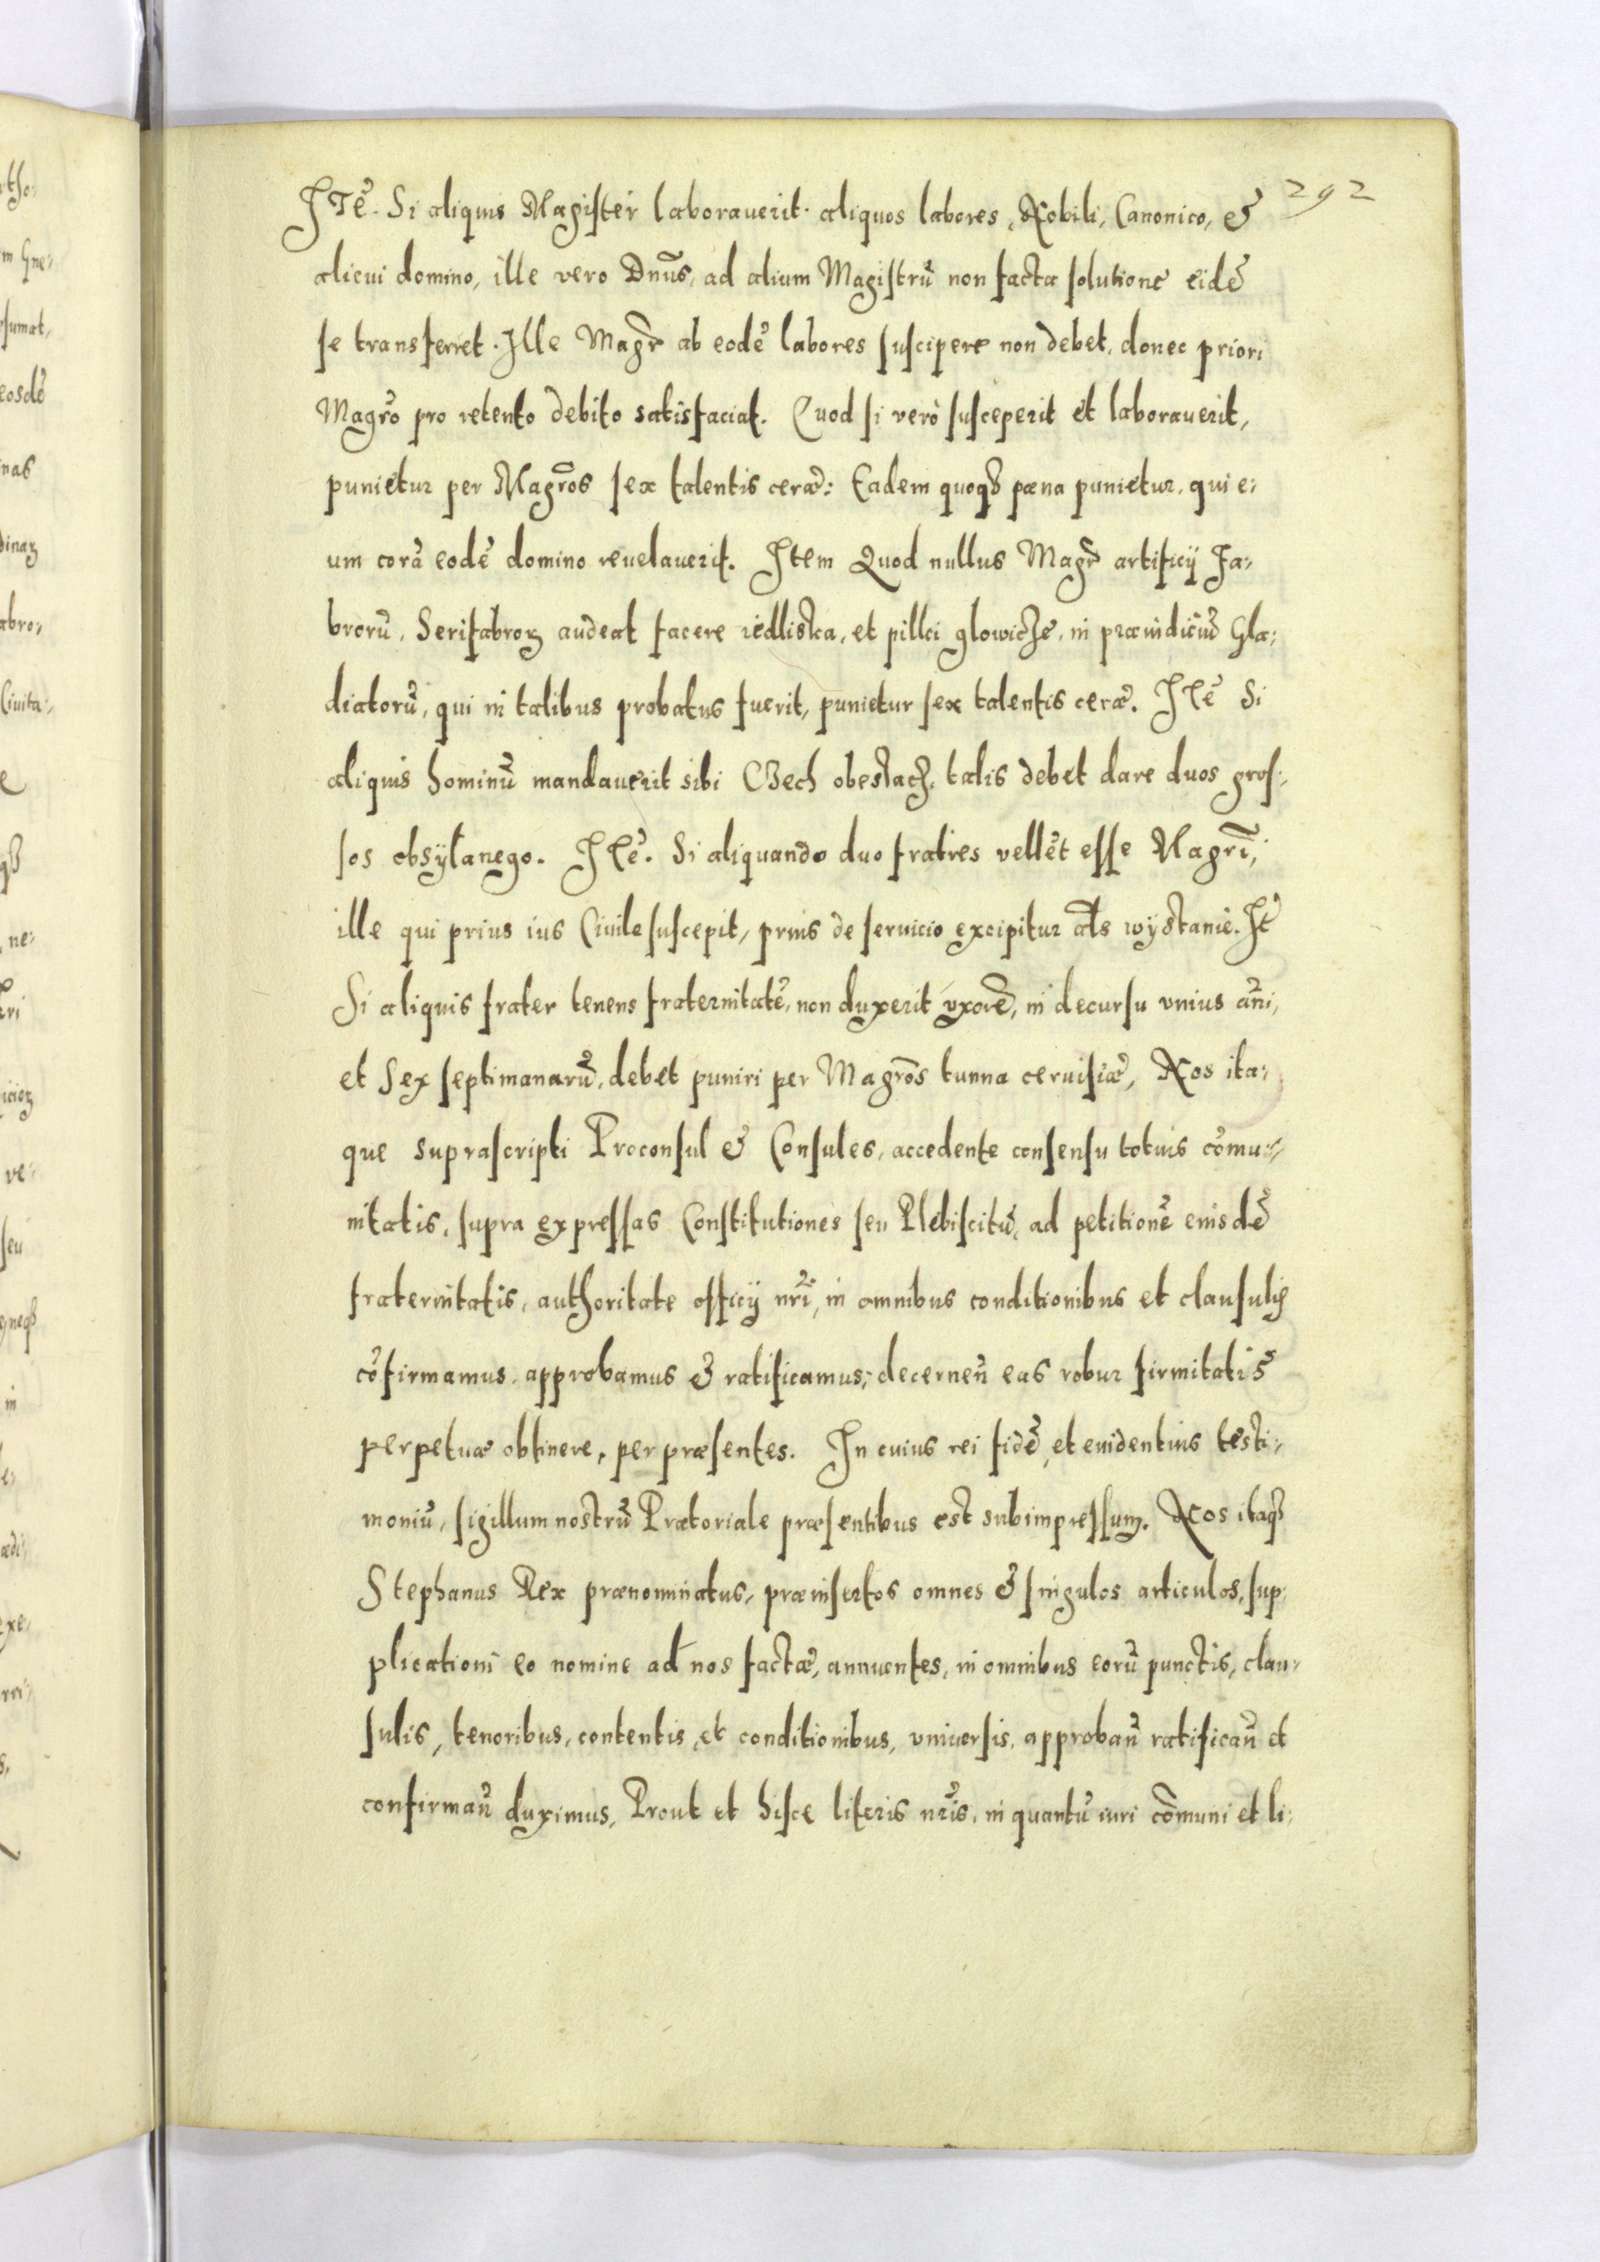 292
ITẽ. Si aliquis Magister laborauerit aliquos labores, Nobili, Canonico, &
alicui domino, ille vero Dnũs, ad alium Magistrũ non facta solutione eidẽ
se transferret. Ille Magr̃ ab eodẽ labores suscipere non debet, donec priori
Magrõ pro retento debito satisfaciat. Quod si verò susceperit et laborauerit,
punietur per Magrõs sex talentis ceræ: Eadem quoqȝ pæna punietur, qui e-
um corã eodẽ domino reuelauerit. Item Quod nullus Magr̃ artificij Fa-
brorũ, Serifabroꝝ audeat facere iedliska, et pilki glowicze, in præiudiciũ Gla-
diatorũ, qui in talibus probatus fuerit, punietur sex talentis ceræ. Itẽ Si
aliquis hominũ mandauerit sibi Czech obeslacz, talis debet dare duos gros-
sos obsÿlanego. Itẽ. Si aliquando duo fratres vellẽt esse Magrĩ,
ille qui prius ius Ciuile suscepit, prius de seruicio excipitur als̃ wystanie. It̃
Si aliquis frater tenens fraternitatẽ, non duxerit vxorẽ, in decursu vnius añi,
et Sex septimanarũ, debet puniri per Magrõs tunna ceruisiæ, Nos ita-
que suprascripti Proconsul & Consules, accedente consensu totius cõmu-
nitatis, supra expressas Constitutiones seu Plebiscitũ, ad petitionẽ eiusdẽ
fraternitatis, authoritate officij nrĩ, in omnibus conditionibus et clausulis
cõfirmamus, approbamus & ratificamus, decerneñ eas robur firmitatis
perpetuæ obtinere, per præsentes. In cuius rei fidẽ, et euidentius testi-
moniũ, sigillum nostrũ Prætoriale præsentibus est subimpressum. Nos itaqȝ
Stephanus Rex prænominatus, præinsertos omnes & singulos articulos, sup-
plicationi eo nomine ad nos factæ, annuentes, in omnibus eorũ punctis, clau-
sulis, tenoribus, contentis, et conditionibus, vniuersis, approbañ ratificañ et
confirmañ duximus, Prout et hisce literis nrĩs, in quantũ iuri cõmuni et li-